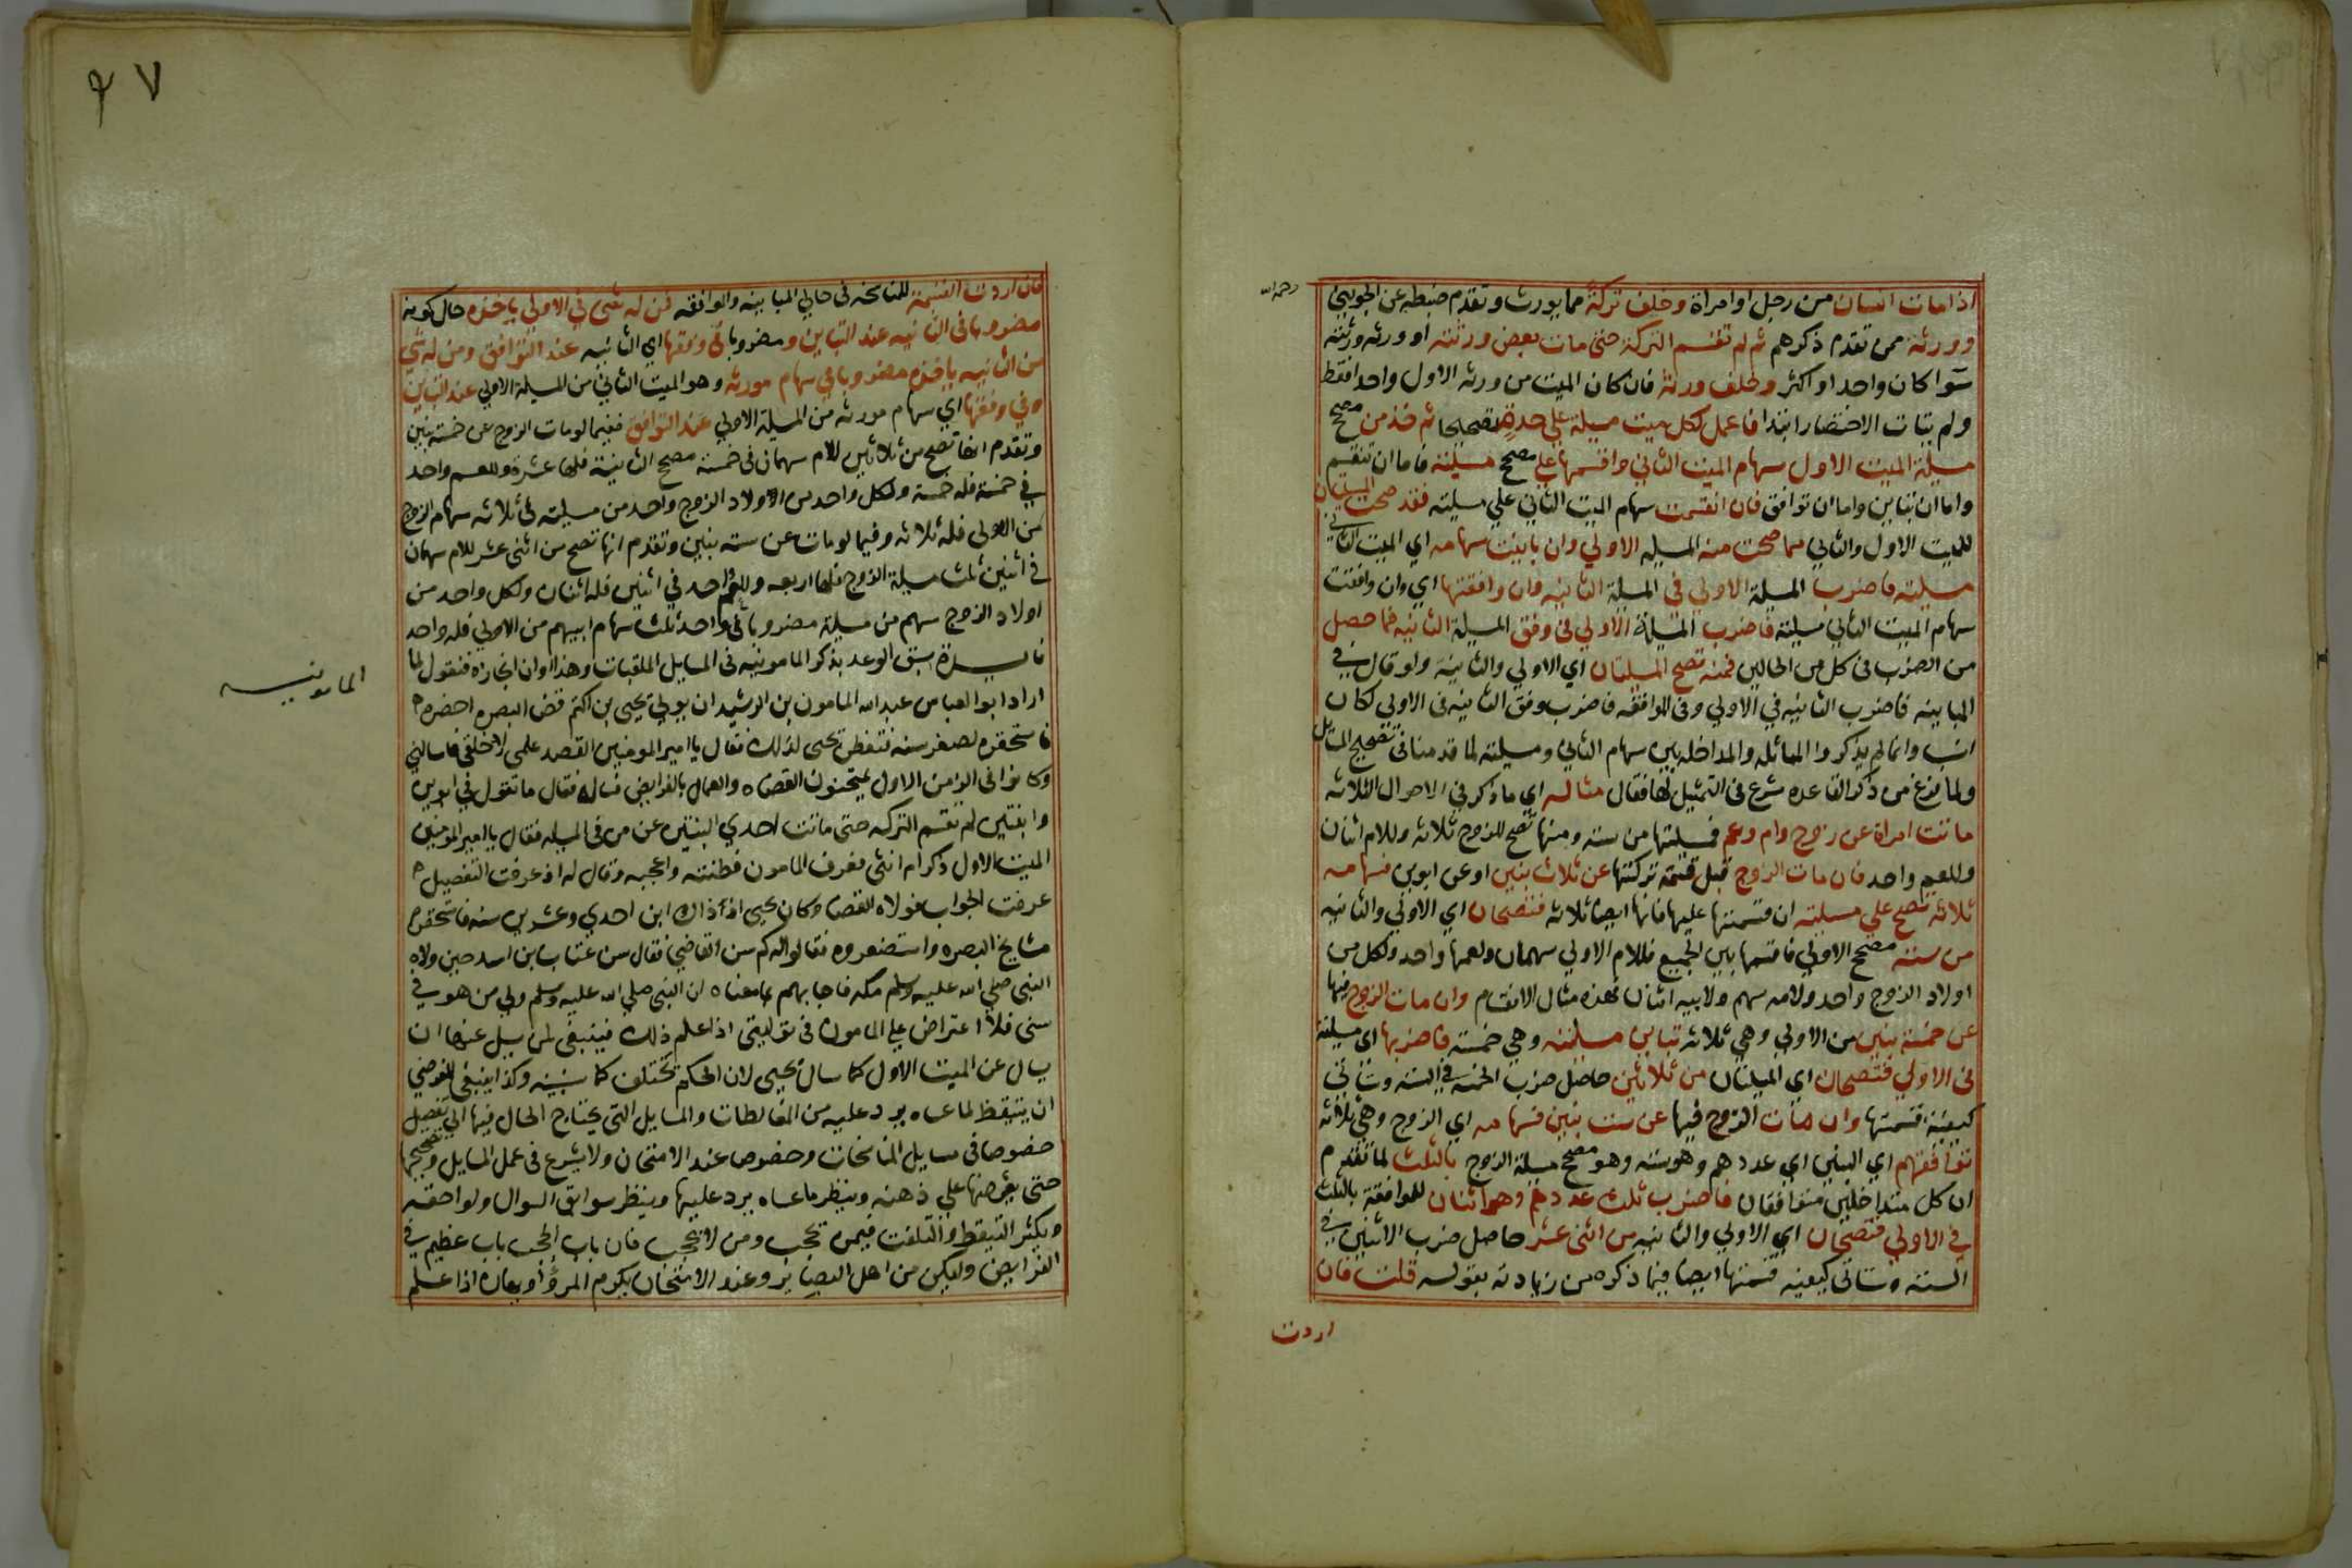 رحمه الله
اذا مات انسان من رجل او امراة وخلف تركة مما يورث وتقدم ضبطه عن الجويني
وورثة ممن تقدم ذكرهم ثم لم تقسم التركة حتى مات بعض ورثته او ورثه ورثته
سوا كان واحدا او اكثر وخلف ورثة فان كان الميت من ورثه الاول واحدا فقط
ولم يتات الاختصار ابتدا فاعمل لكل ميت مسيلة على حدة تصحيحا ثم خذ من مصحح
مسيلة الميت الاول سهام الميت الثاني واقسمها على مصحح مسيلته فاما ان تنقسم
واما ان تباين واما ان توافق فان انقسمت سهام الميت الثاني علي مسيلته فقد صحت المسيلتان
للميت الاول والثاني مما صحت منه المسيله الاولي وان باينت سهامه اي الميت الثاني
مسيلته فاضرب المسيلة الاولي في المسيلة الثانيه وان وافقتها اي وان وافقت
سهام الميت الثاني مسيلته فاضرب المسيلة الاولي في وفق المسيلة الثانيه فما حصل
من الضرب في كل من الحالين فمنه تصح المسيلتان اي الاولي والثانية ولو قال في
المباينه فاضرب الثانيه في الاولي وفي الموافقه فاضرب وفق الثانيه في الاولي لكان
انسب وانما لم يذكروا المماثله والمداخله بين سهام الثاني ومسيلته لما قدمنا في تصحيح المسايل
ولما فرغ من ذكر القاعده شرع في التمثيل لها فقال مثاله اي ما ذكر في الاحوال الثلاثه
ماتت امراة عن زوج وام وعم فمسيلتها من سته ومنها تصح للزوج ثلاثه وللام اثنان
وللعم واحد فان مات الزوج قبل قسمة تركتها عن ثلاث بنين او عن ابوين فسهامه
ثلاثه تصح علي مسيلته ان قسمتها عليها فانها ايضا ثلاثه فتصحان اي الاولي والثانيه
من سته مصحح الاولي فاقسمها بين الجميع فللام الاولي سهمان ولعمها واحد ولكل من
اولاد الزوج واحد ولامه سهم ولابيه اثنان فهذه مثال الانقسام وان مات الزوج فيها
عن خمسة بنين من الاولي وهي ثلاثه تباين مسيلته وهي خمسة فاضربها اي مسيلته
في الاولي فتصحان اي المسيلتان من ثلاثين حاصل ضرب الخمسه في السته وستاتي
كيفية قسمتها وان مات الزوج فيها عن ست بنين فسهامه اي الزوج وهي ثلاثه
توافقهم اي البنين اي عددهم وهو سته وهو مصحح مسيلة الزوج بالثلث لما تقدم
ان كل متداخلين متوافقان فاضرب ثلث عددهم وهو اثنان للموافقة بالثلث
في الاولي فتصحان اي الاولي والثانيه من اثني عشر حاصل ضرب الاثنين في
السته وستاتي كيفيه قسمتها ايضا فيما ذكره من زيادته بقوله قلت فان
اردت
٩٧
فان اردت القسمة للمناسخه في حالي المباينه والموافقه فمن له شي في الاولي ياخذه حال كونه
مضروبا في الثانيه عند التباين ومضروبا في وفقها اي الثانيه عند التوافق ومن له شي
من الثانيه ياخذه مضروبا في سهام مورثه وهو الميت الثاني من المسيلة الاولي عند التباين
وفي وفقها اي سهام مورثه من المسيلة الاولي عند التوافق ففيما لو مات الزوج عن خمسة بنين
وتقدم انها تصح من ثلاثين للام سهمان في خمسة مصحح الثانية فلها عشرة وللعم واحد
في خمسة فله خمسة ولكل واحد من الاولاد الزوج واحد من مسيلته في ثلاثه سهام الزوج
من الاولى فله ثلاثه وفيما لو مات عن سته بنين وتقدم انها تصح من اثني عشر للام سهمان
في اثنين ثلث مسيلة الزوج فلها اربعه وللعم واحد في اثنين فله اثنان ولكل واحد من
اولاد الزوج سهم من مسيلة مضروبا في واحد ثلث سهام ابيهم من الاولي فله واحد
فايدة سبق الوعد بذكر المامونيه في المسايل الملقبات وهذا اوان انجازه فنقول لما
المامونيه
اراد ابو العباس عبد الله المامون بن الرشيد ان يولي يحيى بن اكثم قضا البصره احضره
فاستحقره لصغر سنه فتفطن يحيى لذلك فقال يا امير المومنين القصد علمي لا خلقي فاسالني
وكانوا في الزمن الاول يمتحنون القضاه والعمال بالفرايض فساله فقال ما تقول في ابوين
وابنتين لم تقسم التركه حتى ماتت احدي البنتين عن من في المسيله فقال يا امير المومنين
الميت الاول ذكر ام انثى فعرف المامون فطنته واعجبه وقال له اذ عرفت التفصيل
عرفت الجواب فولاه القضا وكان يحيى اذ ذاك ابن احدي وعشرين سنه فاستحقره
مشايخ البصره واستصغروه فقالوا له كم سن القاضي فقال سن عتاب بن اسيد حين ولاه
النبي صلي الله عليه وسلم مكه فاجابهم بما معناه ان النبي صلي الله عليه وسلم ولي من هو في
سني فلا اعتراض علي المامون في توليتي اذا علم ذلك فينبغي لمن سيل عنها ان
يسال عن الميت الاول كما سال يحيى لان الحكم يختلف كما نبينه وكذا ينبغي للفرضي
ان يتيقظ لما عساه يرد عليه من المغالطات والمسايل التي يحتاج الحال فيها الي تفصيل
خصوصا في مسايل المناسخات وخصوصا عند الامتحان ولا يشرع في عمل المسايل وتصحيحها
حتى يعرضها علي ذهنه وينظر ما عساه يرد عليها وينظر سوابق السوال ولواحقه
ويكثر التيقظ والتلفت فيمن يحجب ومن لا يحجب فان باب الحجب باب عظيم في
الفرايض وليكن من اهل البصاير وعند الامتحان يكرم المرؤ او يهان اذا علم